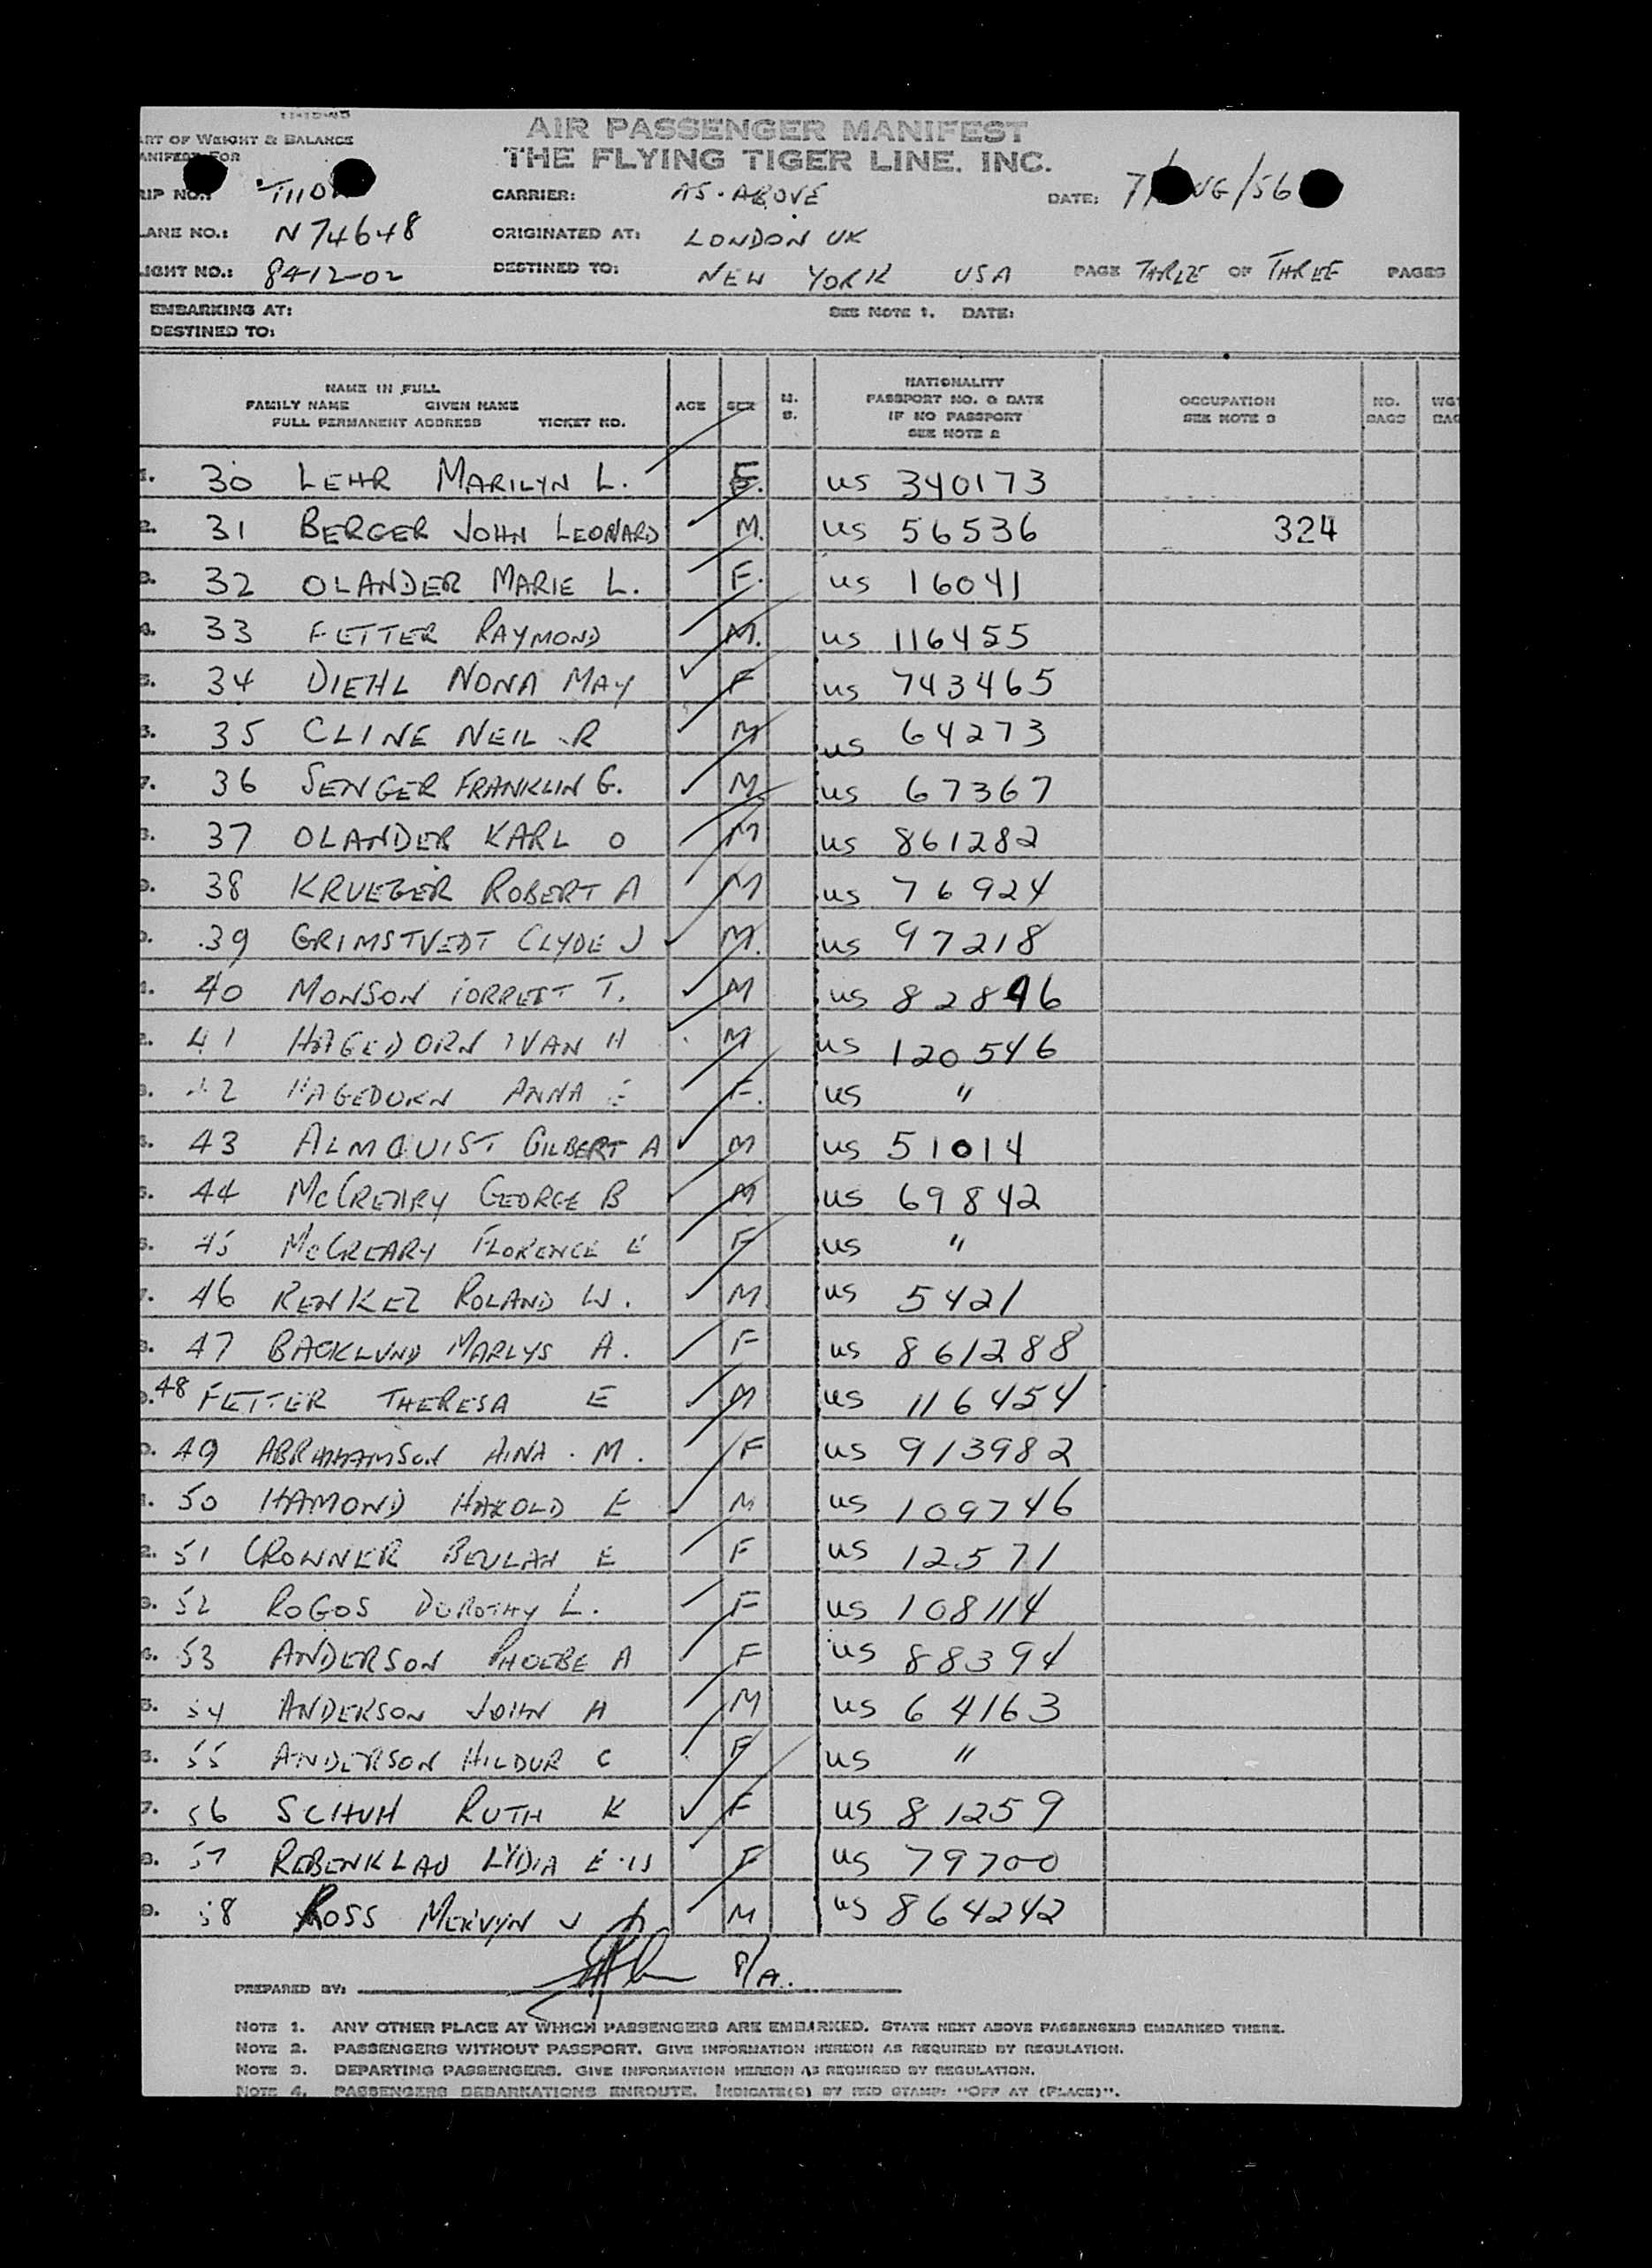 ART OF WEIGHT & BALANCE
AIR PASSENGER MANIFEST
THE FLYING TIGER LINE, INC.
CARRIER: AS-ABOVE DATE: 7/ UG/56
LANE NO.: N74648 ORIGINATED AT: LONDON UK
LIGHT NO.: 8412-02 DESTINED TO: NEW YORK USA PAGE THREE OF THREE PAGES
EMBARKING AT: SEE NOTE 1. DATE:
DESTINED TO:
NAME IN FULL
FAMILY NAME GIVEN NAME
FULL PERMANENT ADDRESS TICKET NO.
AGE SEX M. S.
NATIONALITY
PASSPORT NO. & DATE
IF NO PASSPORT
SEE NOTE 2
OCCUPATION
SEE NOTE 3
NO. BAGS
30 LEHR MARILYN L. F. US 340173
31 BERGER JOHN LEONARD M. US 56536 324
32 OLANDER MARIE L. F. US 16041
33 FETTER RAYMOND M. US 116455
34 DIEHL NONA MAY F US 743465
35 CLINE NEIL R M US 64273
36 SENGER FRANKLIN G. M US 67367
37 OLANDER KARL O M US 861282
38 KRUEGER ROBERT A M US 76924
39 GRIMSTVEDT CLYDE J M. US 97218
40 MONSON T. M US 82846
41 HAGEDORN IVAN H M US 120546
42 HAGEDORN ANNA E F. US "
43 ALMQUIST GILBERT A M US 51014
44 MCCREARY GEORGE B M US 69842
45 MCCREARY FLORENCE E F US "
46 RENKEZ ROLAND W. M US 5421
47 BACKLUND MARLYS A. F US 861288
48 FETTER THERESA E M US 116454
49 ABRAHAMSON AINA M. F US 913982
50 HAMOND HAROLD E M US 109746
51 CROWNER BEULAH E F US 12571
52 ROGOS DOROTHY L. F US 108114
53 ANDERSON PHOEBE A F US 88394
54 ANDERSON JOHN A M US 64163
55 ANDERSON HILDUR C F US "
56 SCHUH RUTH K F US 81259
57 REBENKLAU LYDIA E F US 79700
58 ROSS MERVYN J M US 864242
PREPARED BY: P/A.
NOTE 1. ANY OTHER PLACE AT WHICH PASSENGERS ARE EMBARKED. STATE NEXT ABOVE PASSENGERS EMBARKED THERE.
NOTE 2. PASSENGERS WITHOUT PASSPORT. GIVE INFORMATION HEREON AS REQUIRED BY REGULATION.
NOTE 3. DEPARTING PASSENGERS. GIVE INFORMATION HEREON AS REQUIRED BY REGULATION.
NOTE 4. PASSENGERS DEBARKATIONS ENROUTE. INDICATE(D) BY RED STAMP: "OFF AT (PLACE)".